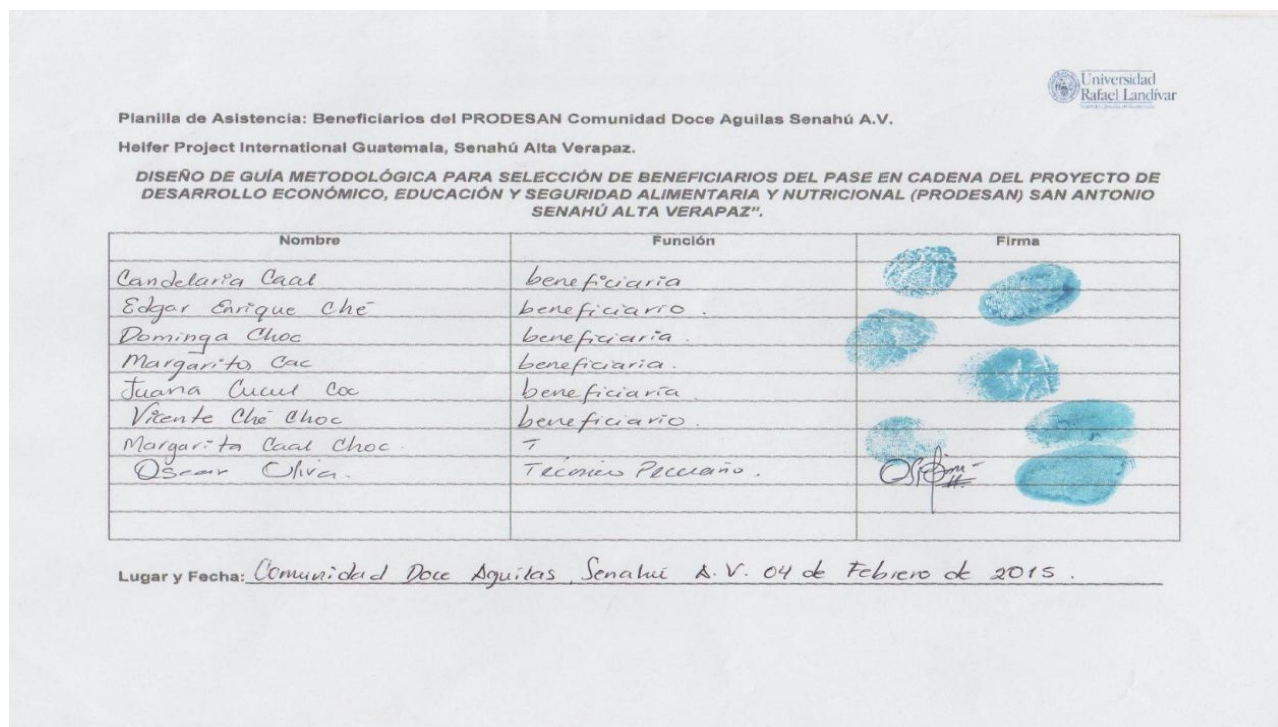 Universidad
Rafael Landívar
Planilla de Asistencia: Beneficiarios del PRODESAN Comunidad Doce Aguilas Senahú A.V.
Heifer Project International Guatemala, Senahú Alta Verapaz.
DISEÑO DE GUÍA METODOLÓGICA PARA SELECCIÓN DE BENEFICIARIOS DEL PASE EN CADENA DEL PROYECTO DE
DESARROLLO ECONÓMICO, EDUCACIÓN Y SEGURIDAD ALIMENTARIA Y NUTRICIONAL (PRODESAN) SAN ANTONIO
SENAHÚ ALTA VERAPAZ".
Nombre Función Firma
Candelaria Caal beneficiaria
Edgar Enrique Ché beneficiario.
Dominga Choc beneficiaria.
Margarito Cac beneficiaria.
Juana Cucul Coc beneficiaria
Vicente Ché Choc beneficiario.
Margarito Caal Choc.
Oscar Oliva. Técnico
Lugar y Fecha: Comunidad Doce Aguilas, Senahú A.V. 04 de Febrero de 2015.